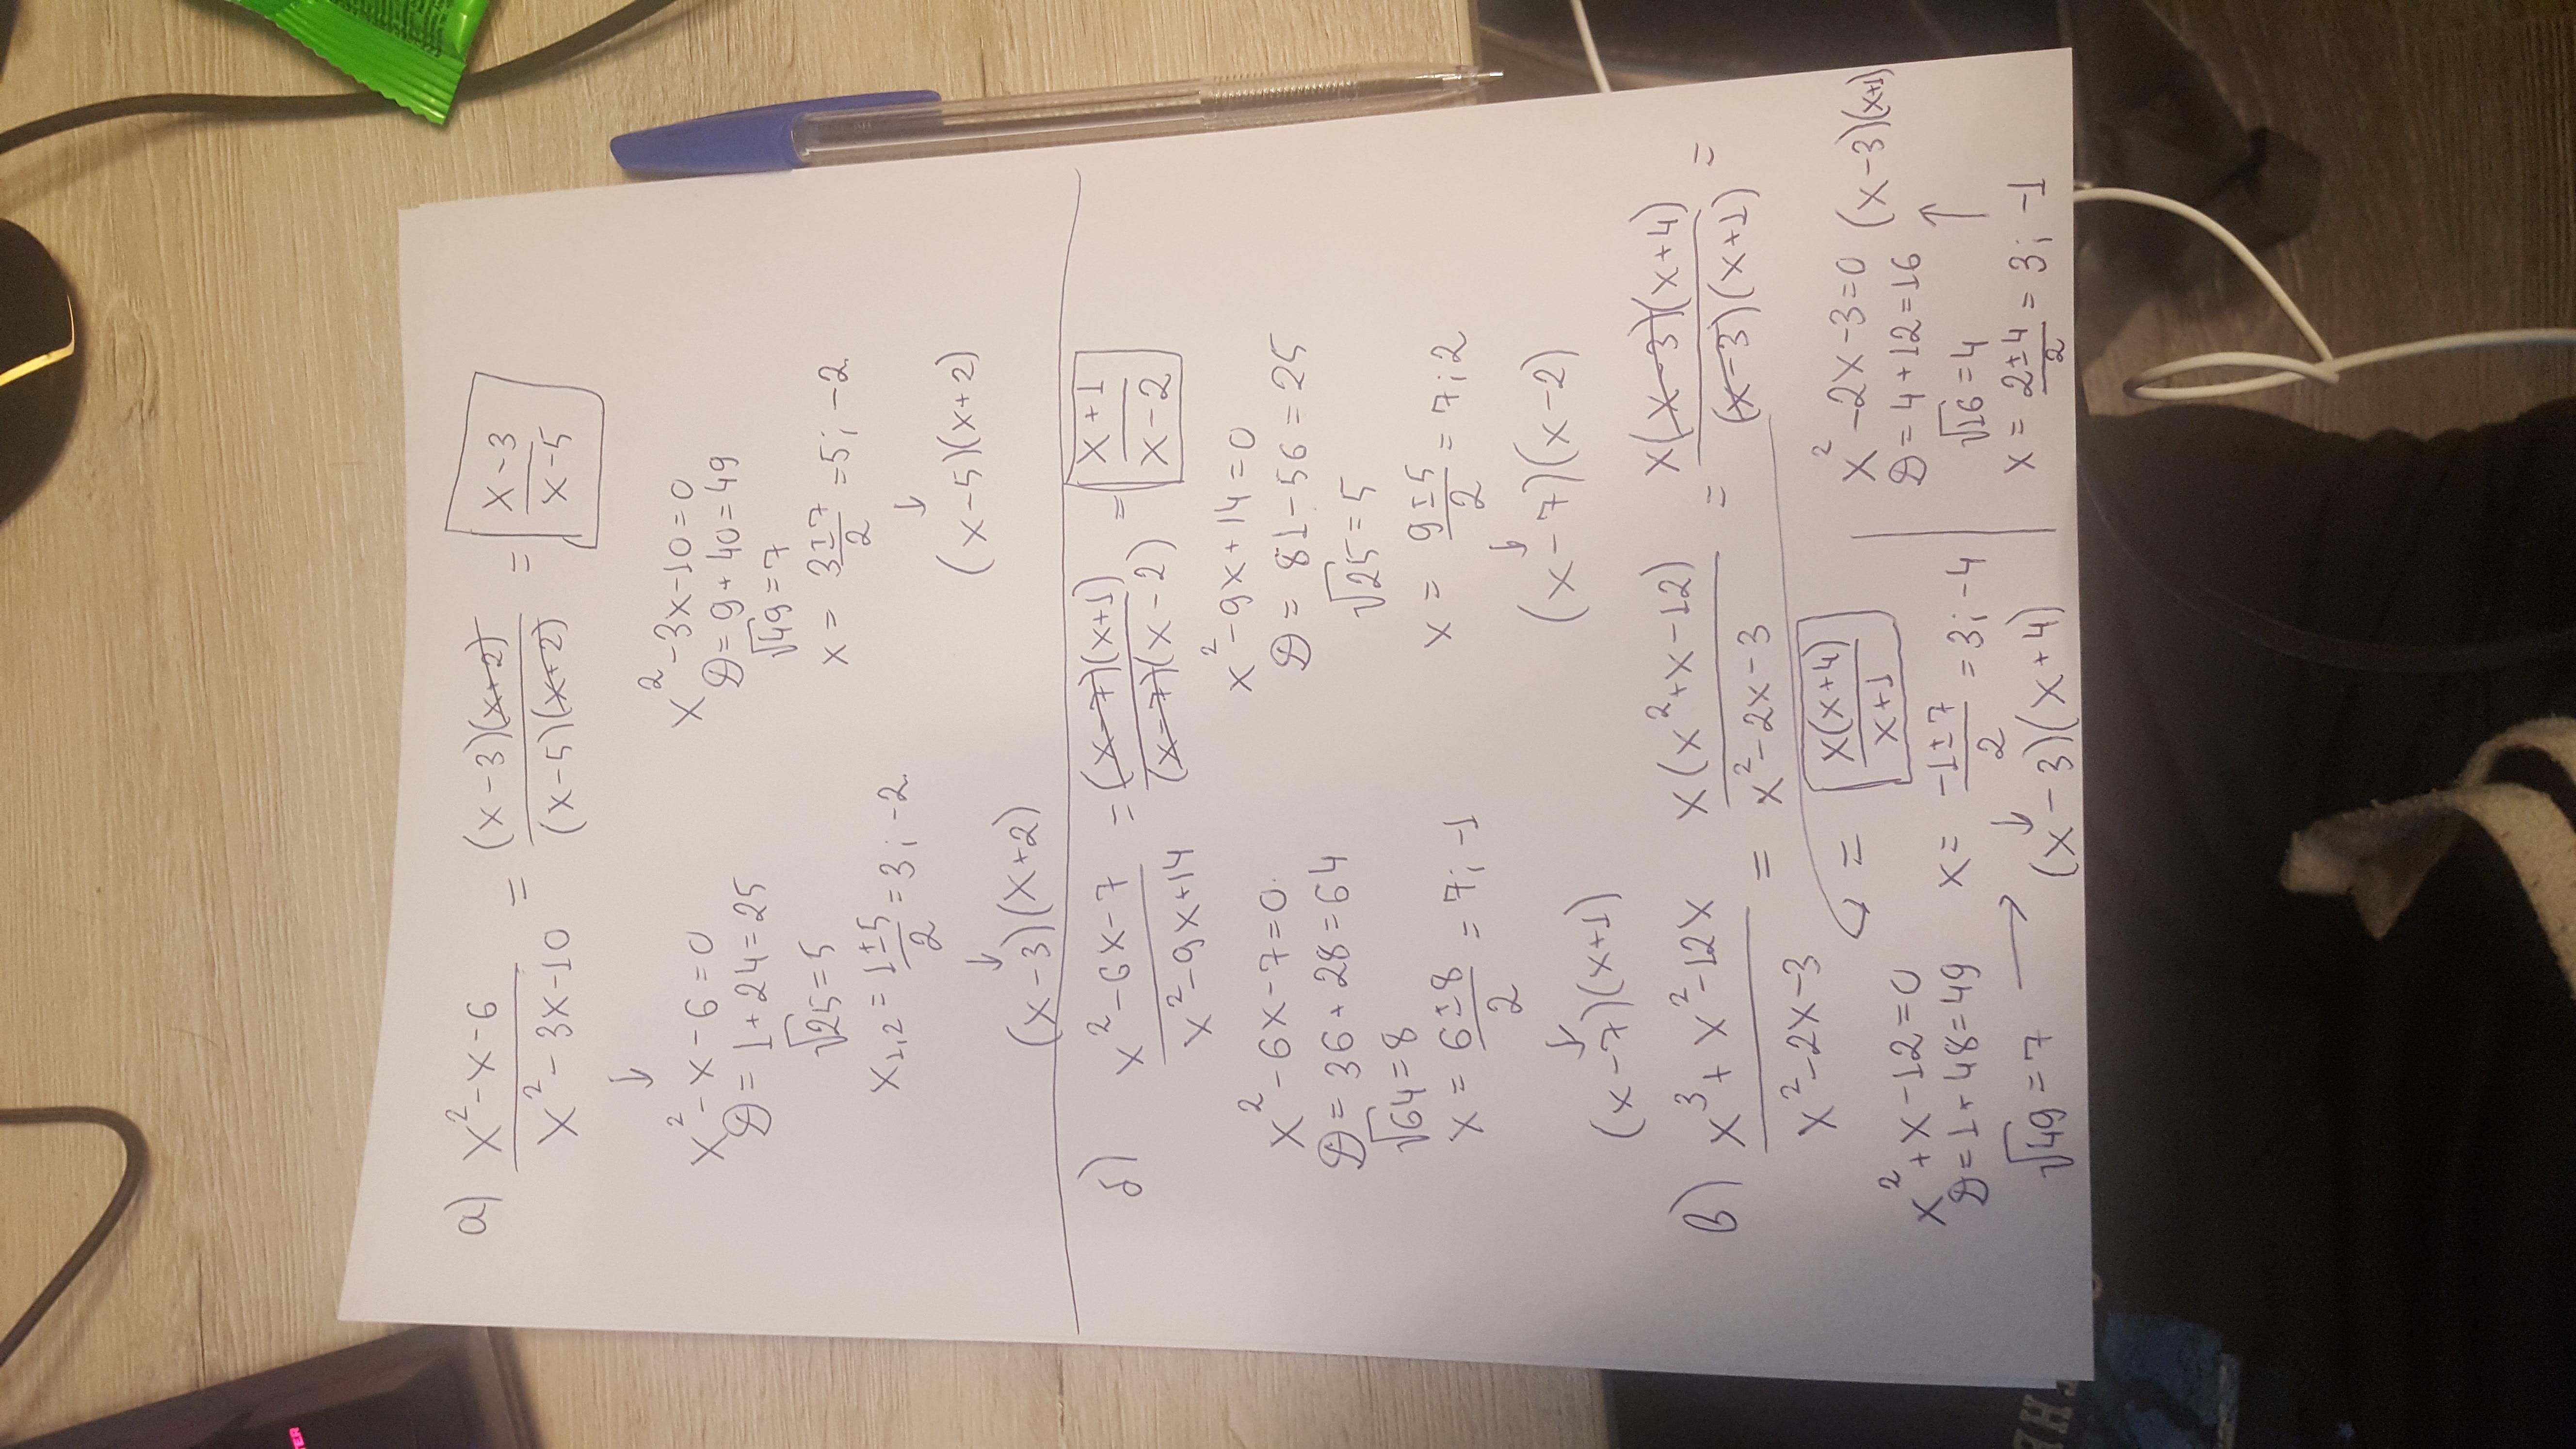 а) x²-x-6 / x²-3x-10 = (x-3)(x+2) / (x-5)(x+2) = x-3 / x-5
↓
x²-x-6=0
D=1+24=25
√25=5
x₁,₂ = 1±5 / 2 = 3; -2
↓
(x-3)(x+2)
x²-3x-10=0
D=9+40=49
√49=7
x= 3±7 / 2 =5; -2
↓
(x-5)(x+2)
б) x²-6x-7 / x²-9x+14 = (x-7)(x+1) / (x-7)(x-2) = x+1 / x-2
x²-6x-7=0
D=36+28=64
√64=8
x= 6±8 / 2 = 7; -1
↓
(x-7)(x+1)
x²-9x+14=0
D= 81-56=25
√25=5
x = 9±5 / 2 = 7; 2
↓
(x-7)(x-2)
в) x³+x²-12x / x²-2x-3 = x(x²+x-12) / x²-2x-3 = x(x-3)(x+4) / (x-3)(x+1) =
= x(x+4) / x+1
x²+x-12=0
D=1+48=49
√49=7 →
x= -1±7 / 2 =3; -4
↓
(x-3)(x+4)
x²-2x-3=0 (x-3)(x+1)
D=4+12=16 ↑
√16=4
x= 2±4 / 2 =3; -1